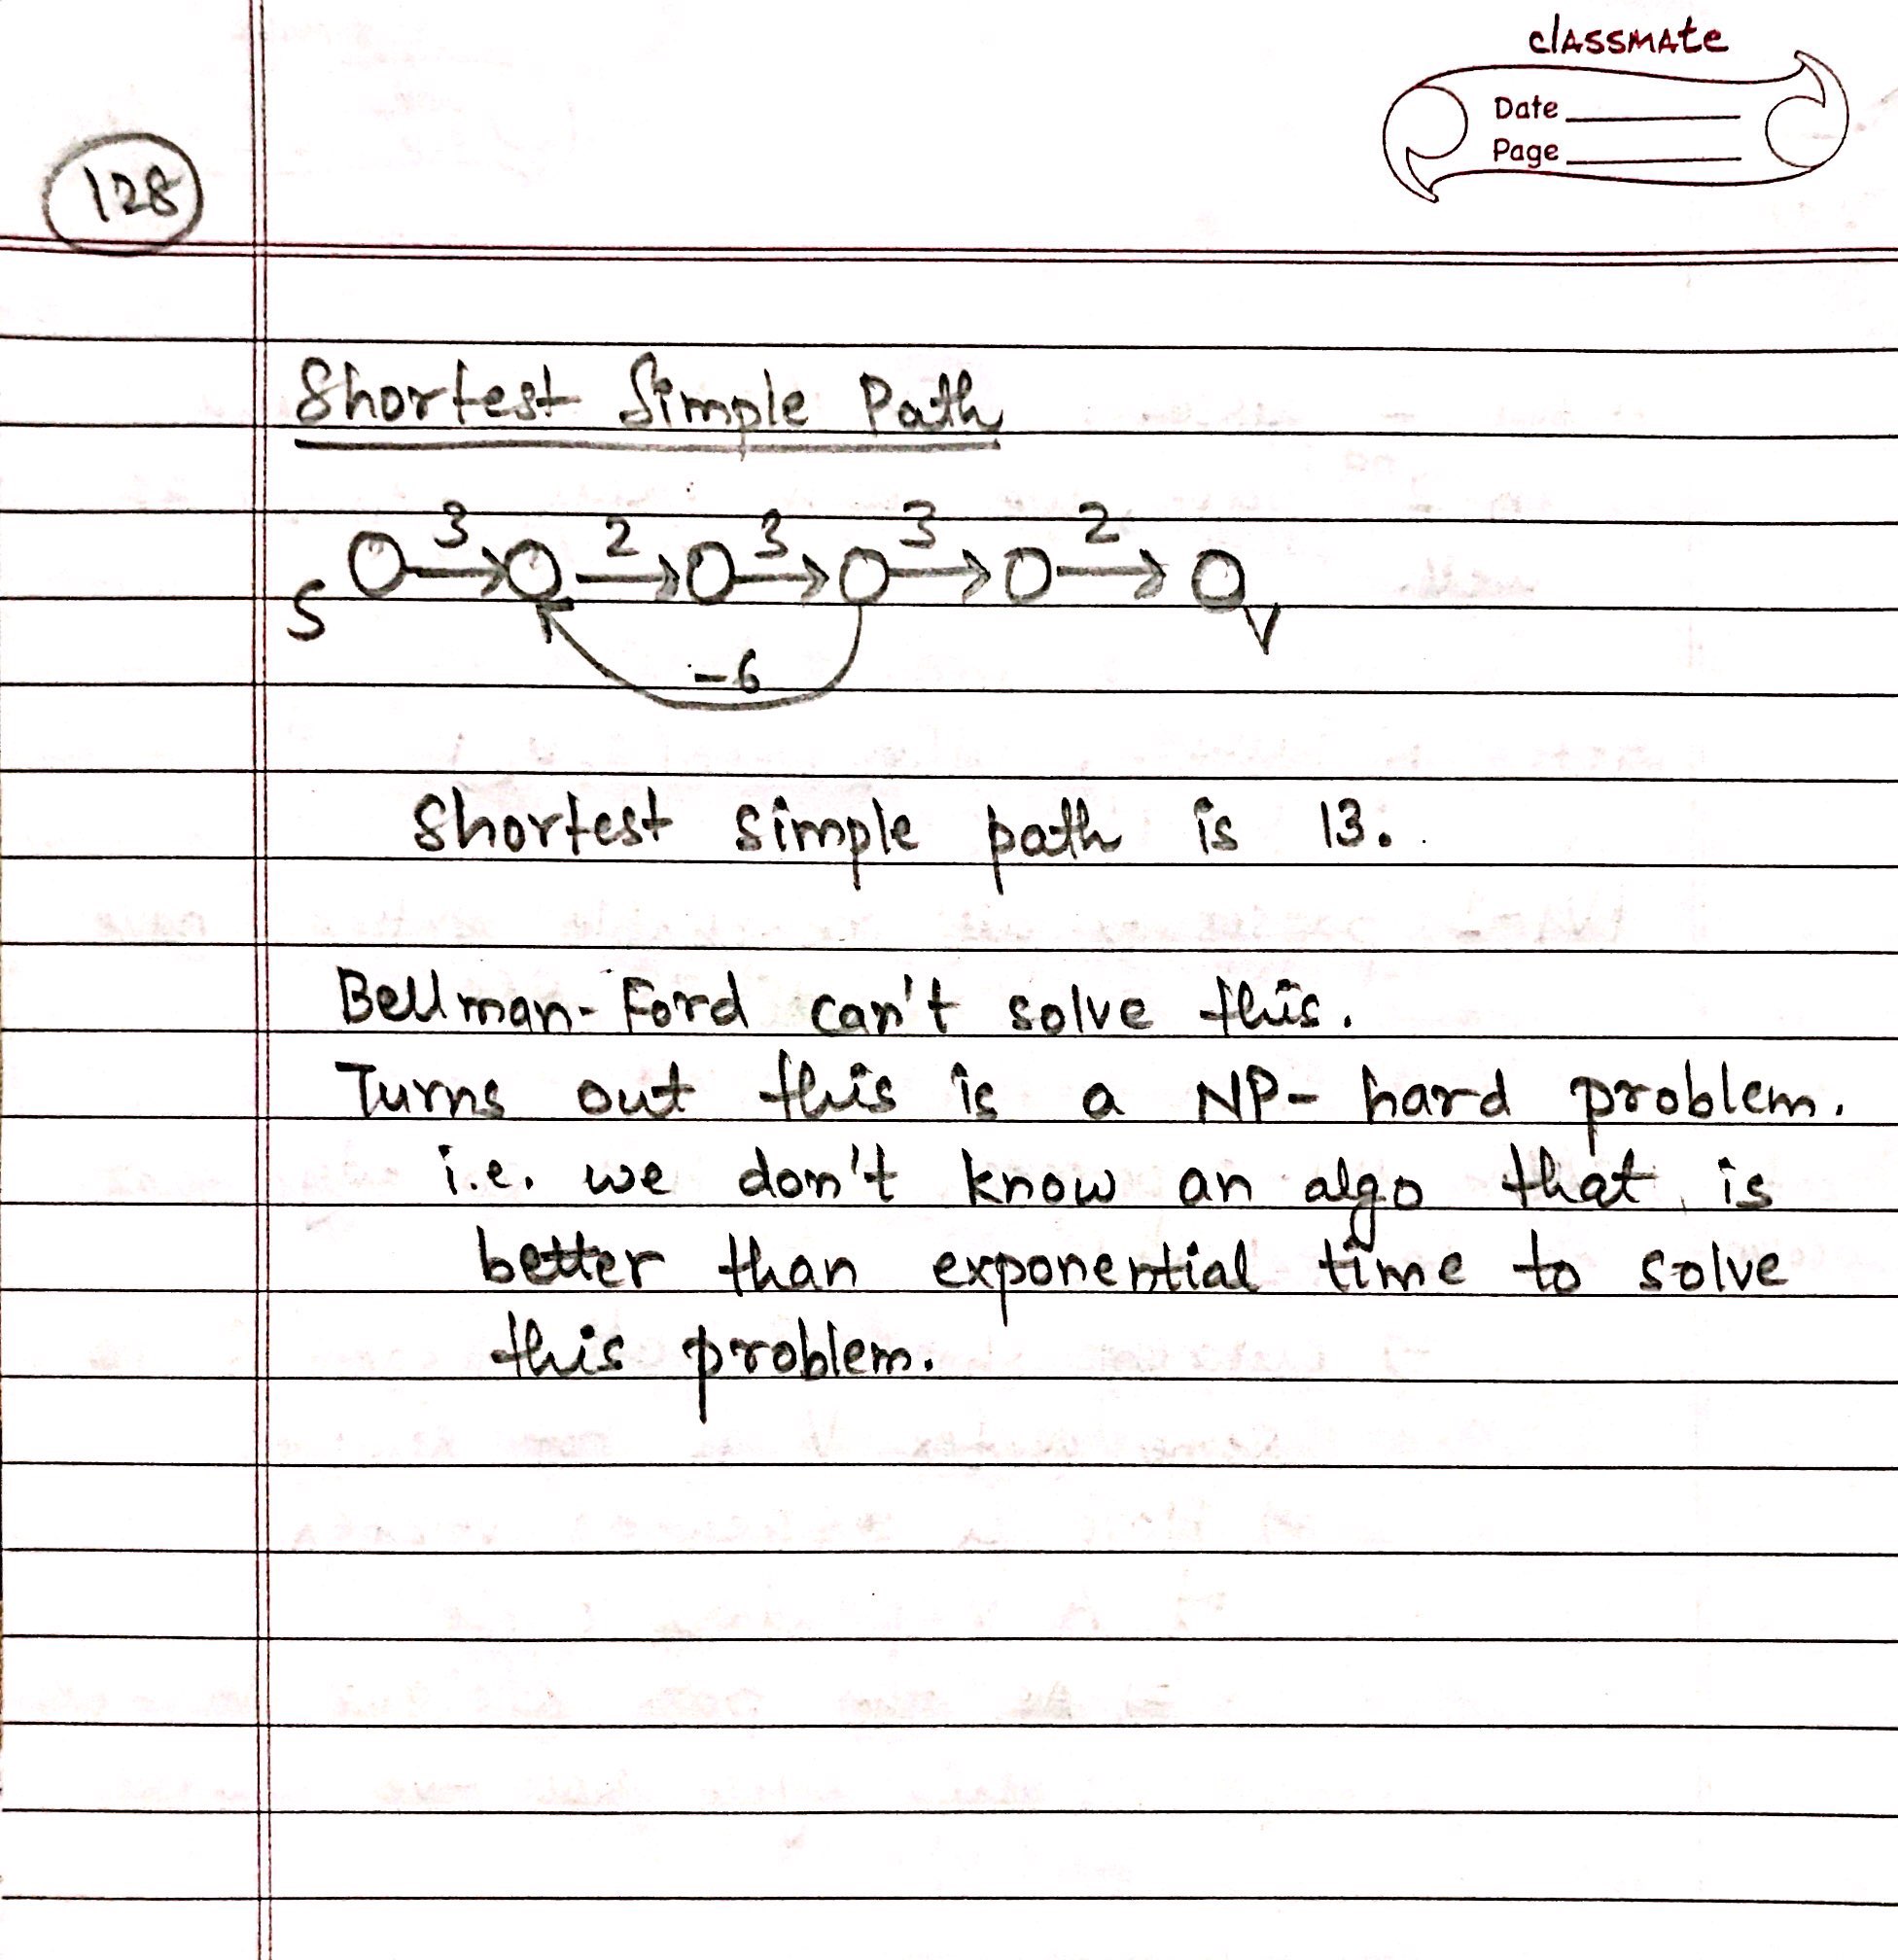 classmate
Date
Page
128
Shortest Simple Path
3 2 3 3 2
S
V
-6
Shortest simple path is 13.
Bellman-Ford can't solve this.
Turns out this is a NP-hard problem.
i.e. we don't know an algo that is
better than exponential time to solve
this problem.